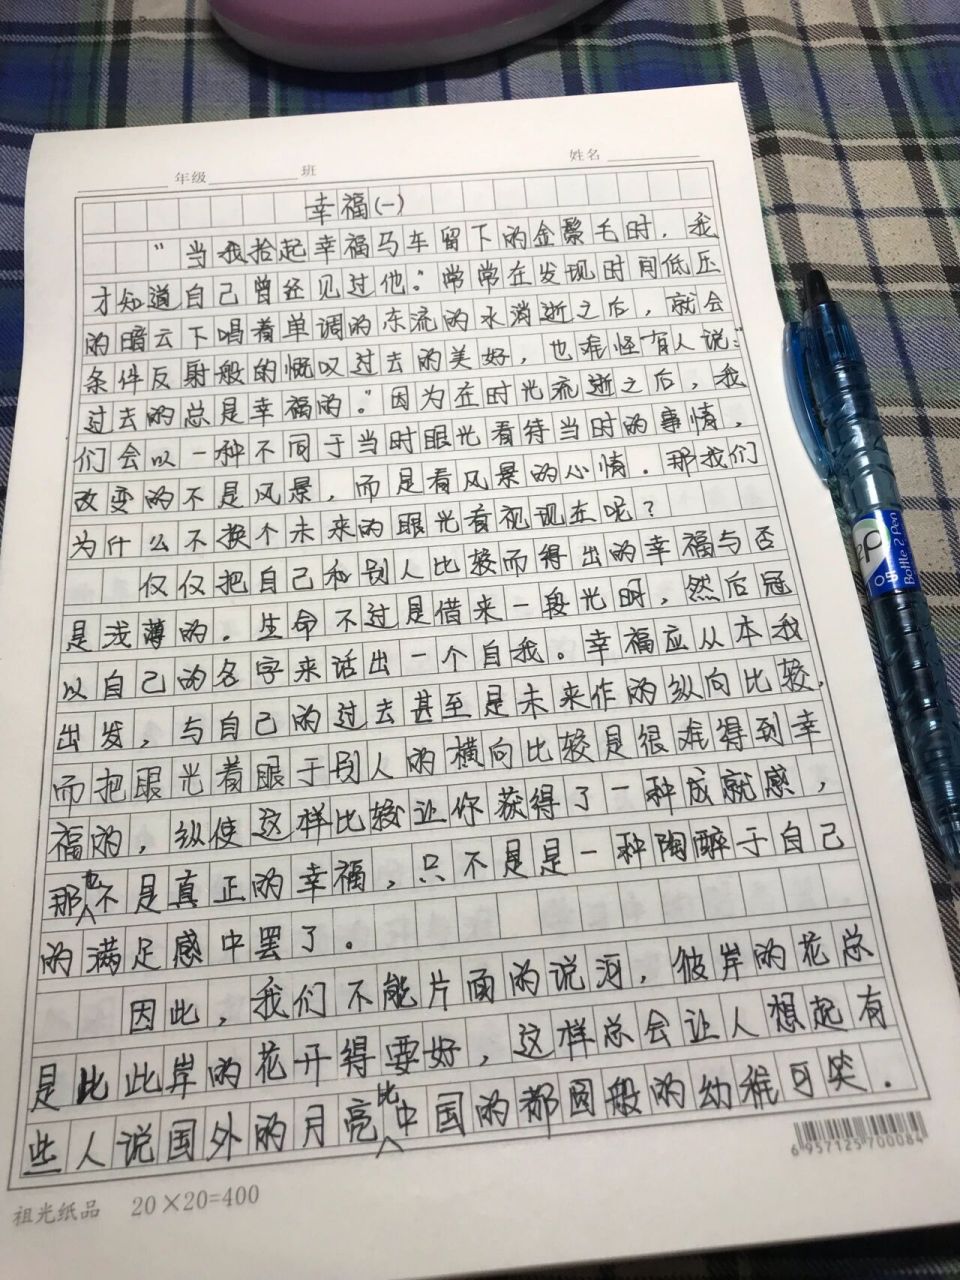 年级 班 姓名
幸福(一)
“当我拾起幸福马车留下的金鬃毛时，我
才知道自己曾经见过他。”常常在发现时间低压
的暗云下唱着单调的东流的水消逝之后，就会
条件反射般的慨叹过去的美好，也难怪有人说：“
过去的总是幸福的。”因为在时光流逝之后，我
们会以一种不同于当时眼光看待当时的事情，
改变的不是风景，而是看风景的心情。那我们
为什么不换个未来的眼光看视现在呢？
仅仅把自己和别人比较而得出的幸福与否
是浅薄的。生命不过是借来一段光时，然后冠
以自己的名字来活出一个自我。幸福应从本我
出发，与自己的过去甚至是未来作的纵向比较，
而把眼光着眼于别人的横向比较是很难得到幸
福的，纵使这样比较让你获得了一种成就感，
那也不是真正的幸福，只不是是一种陶醉于自己
的满足感中罢了。
因此，我们不能片面的说河，彼岸的花总
是比此岸的花开得要好，这样总会让人想起有
些人说国外的月亮比中国的都圆般的幼稚可笑。
6957125700084
祖光纸品 20×20=400
P
05 Bottle 2 Pen